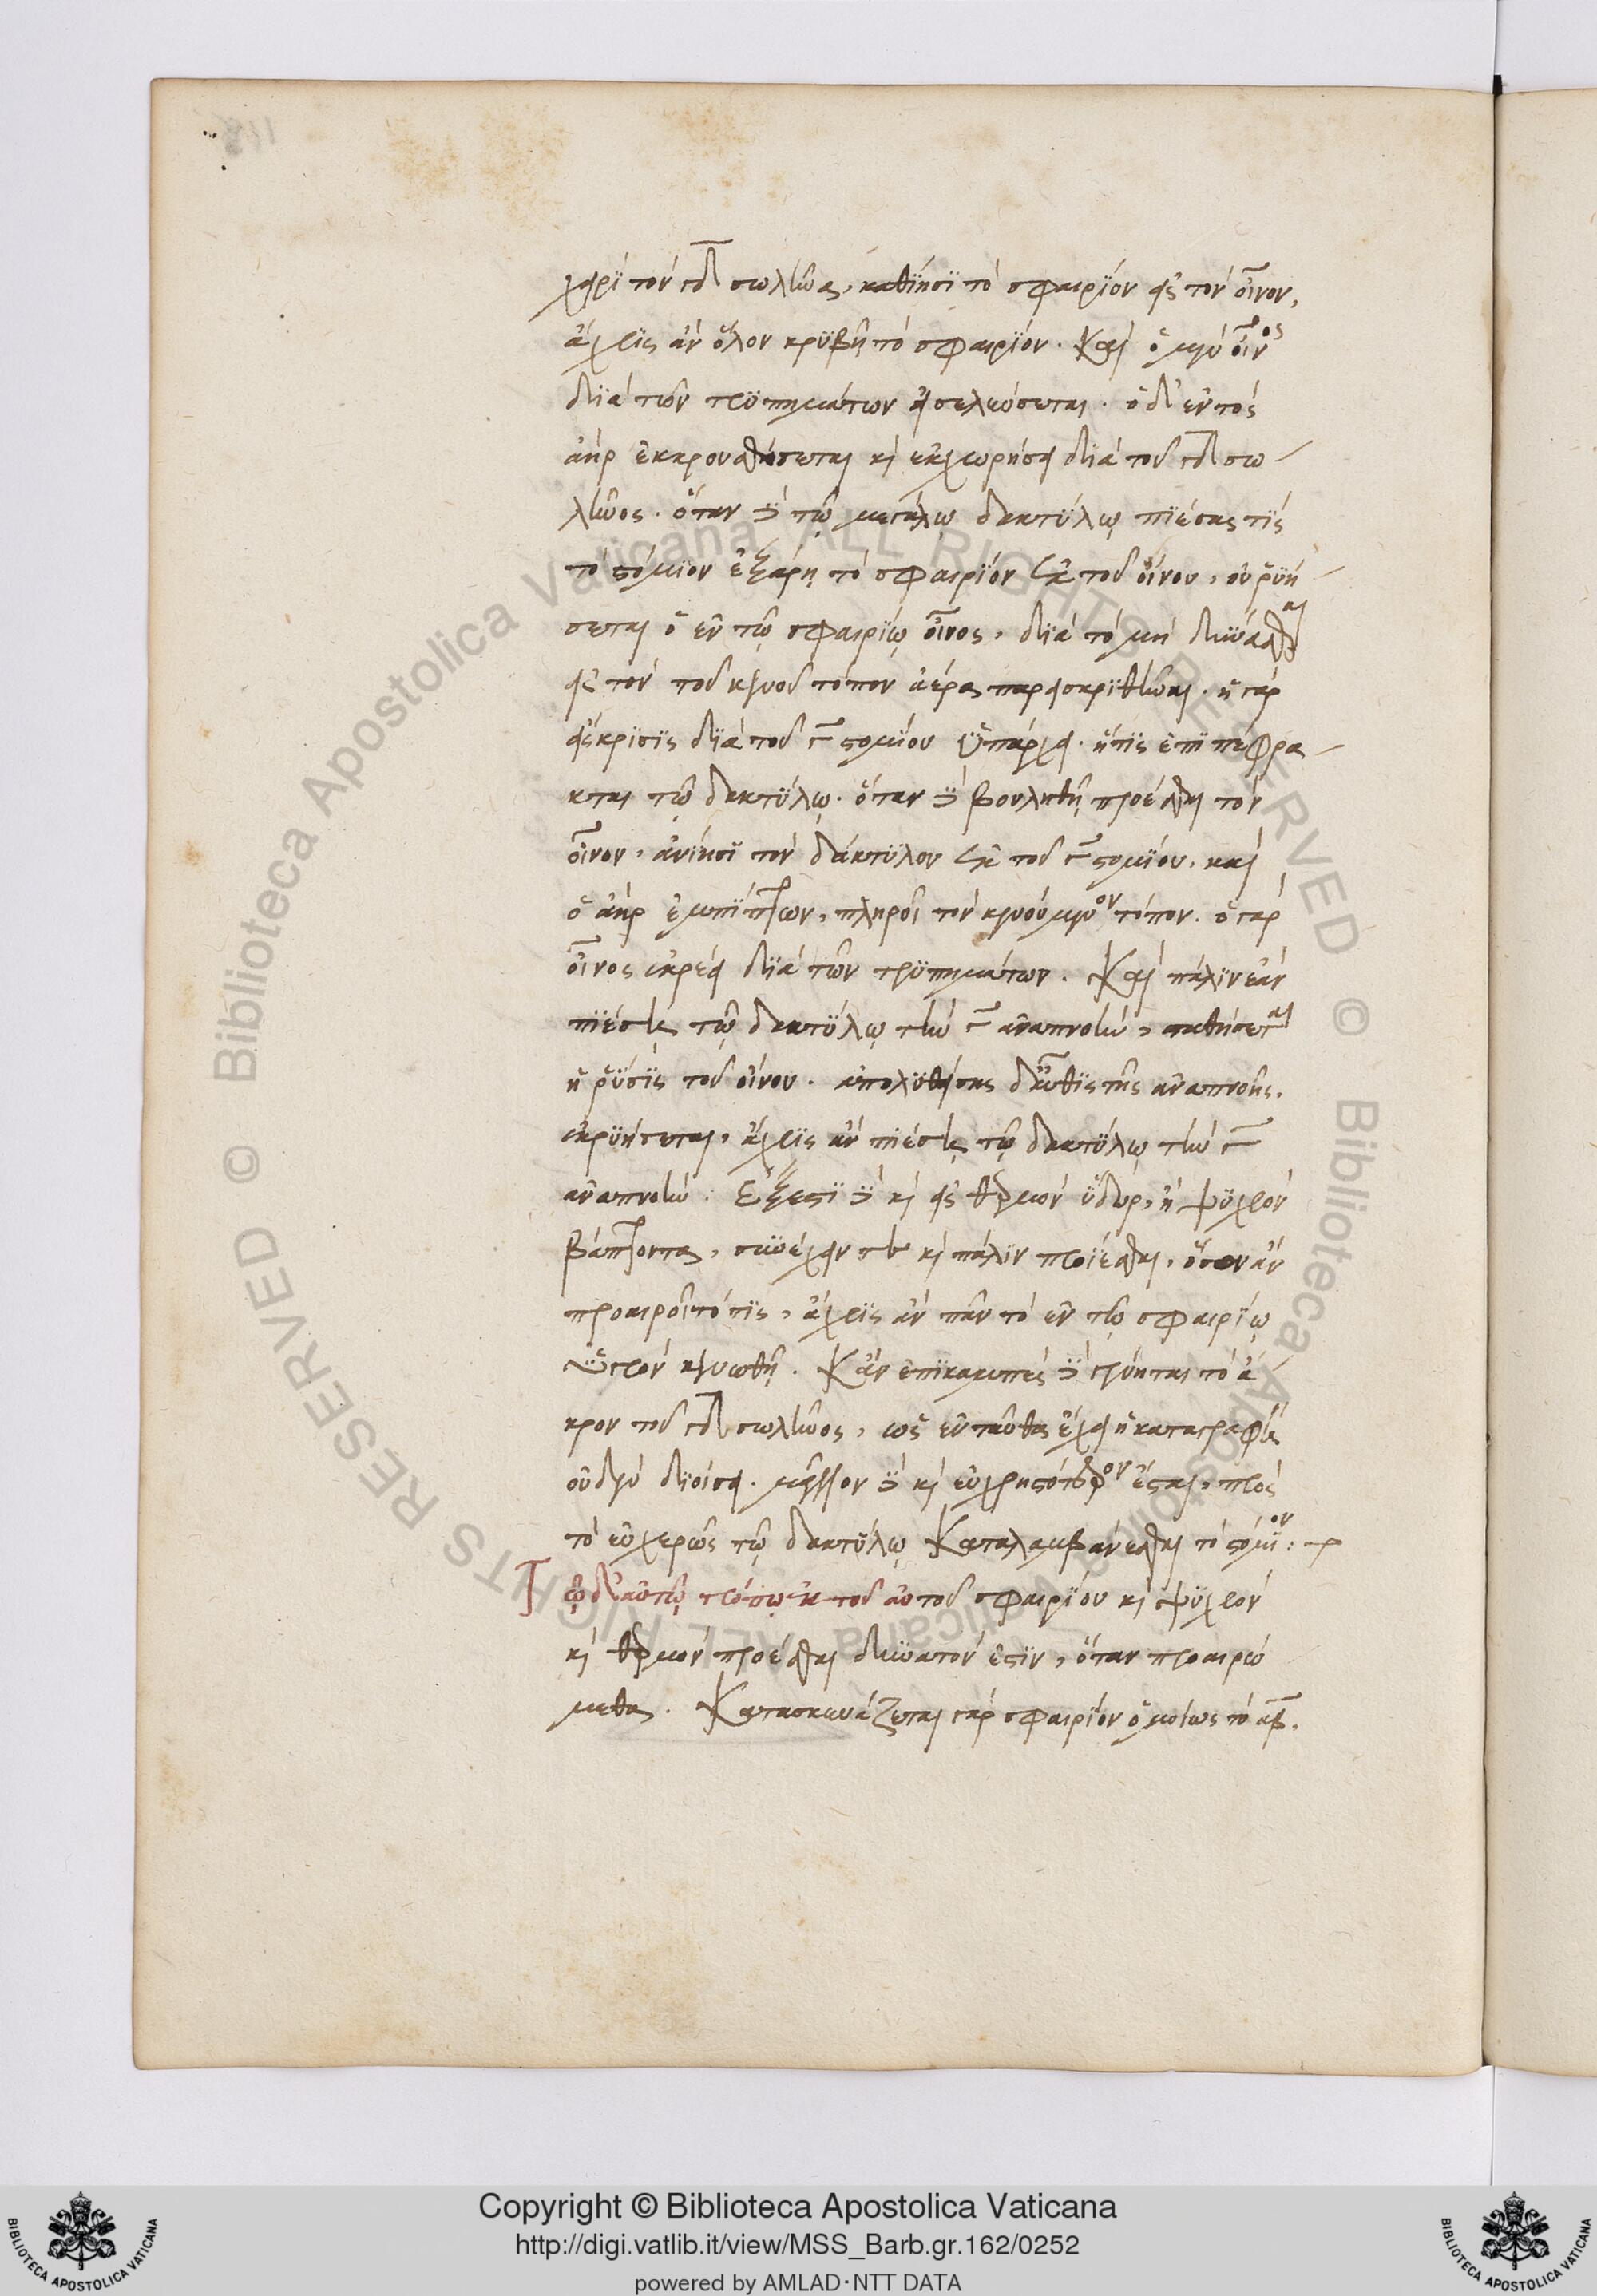 χειρὶ τὸν ΓΔ σωλῆνα, καθίησι τὸ σφαιρίον εἰς τὸν οἶνον,
ἄχρις ἂν ὅλον κρυβῇ τὸ σφαιρίον. Καὶ ὁ μὲν οἶνος
διὰ τῶν τρυπημάτων εἰσελεύσεται. ὁ δ' ἐντὸς
ἀὴρ ἐκκρουσθήσεται κ(αὶ) ἐκχωρήσει διὰ τοῦ ΓΔ σω
λῆνος. ὅταν δὲ τῷ μεγάλῳ δακτύλῳ πιέσας τις
τὸ στόμιον ἐξάρῃ τὸ σφαιρίον ἐκ τοῦ οἴνου, οὐ ῥυή
σεται ὁ ἐν τῷ σφαιρίῳ οἶνος, διὰ τὸ μὴ δύνασθαι
εἰς τὸν τοῦ κενοῦ τόπον ἀέρα παρεισκριθῆναι. ἡ γὰρ
εἴσκρισις διὰ τοῦ Γ στομίου ὑπάρχει. ἥτις ἐπιπέφρα
κται τῷ δακτύλῳ. ὅταν δὲ βουληθῇ προέσθαι τὸν
οἶνον, ἀνίησι τὸν δάκτυλον ἐκ τοῦ Γ στομίου, καὶ
ὁ ἀὴρ ἐμπίπτων, πληροῖ τὸν κενούμενον τόπον. ὁ γὰρ
οἶνος ἐκρέει διὰ τῶν τρυπημάτων. Καὶ πάλιν ἐὰν
πιέσῃς τῷ δακτύλῳ τὴν Γ ἀναπνοὴν, σταθήσεται
ἡ ῥύσις τοῦ οἴνου. ἀπολυθείσης δ' αὖθις τῆς ἀναπνοῆς,
ἐκρυήσεται, ἄχρις ἂν πιέσῃς τῷ δακτύλῳ τὴν Γ
ἀναπνοὴν. Ἔξεστι δὲ κ(αὶ) εἰς θερμὸν ὕδωρ, ἢ ψυχρὸν
βάπτοντα, συνέχειν τε κ(αὶ) πάλιν προίεσθαι, ὅσον ἂν
προαιροῖτό τις, ἄχρις ἂν πᾶν τὸ ἐν τῷ σφαιρίῳ
ὑγρὸν κενωθῇ. Κἂν ἐπικαμπὲς δὲ γένηται τὸ ἄ
κρον τοῦ ΓΔ σωλῆνος, ὡς ἐνταῦθα ἔχει ἡ καταγραφὴ
οὐδὲν διοίσει. μᾶλλον δὲ κ(αὶ) εὐχρηστότερον ἔσται, πρὸς
τὸ εὐχερῶς τῷ δακτύλῳ Καταλαμβάνεσθαι τὸ στόμιον :
Τῷ δ' αὐτῷ τρόπῳ ἐκ τοῦ αὐτοῦ σφαιρίου κ(αὶ) ψυχρὸν
κ(αὶ) θερμὸν προέσθαι δυνατόν ἐστιν, ὅταν προαιρώ
μεθα. Κατασκευάζεται γὰρ σφαιρίον ὁμοίως τὸ ΑΒ.
Copyright © Biblioteca Apostolica Vaticana
http://digi.vatlib.it/view/MSS_Barb.gr.162/0252
powered by AMLAD·NTT DATA